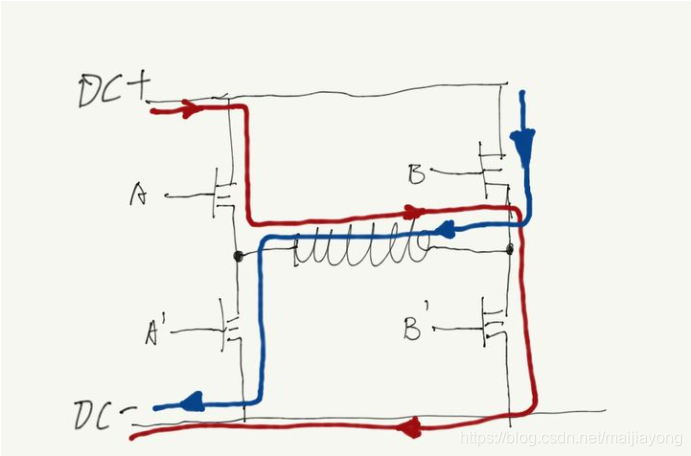 DC+
A
B
A'
B'
DC-
https://blog.csdn.net/maijiayong